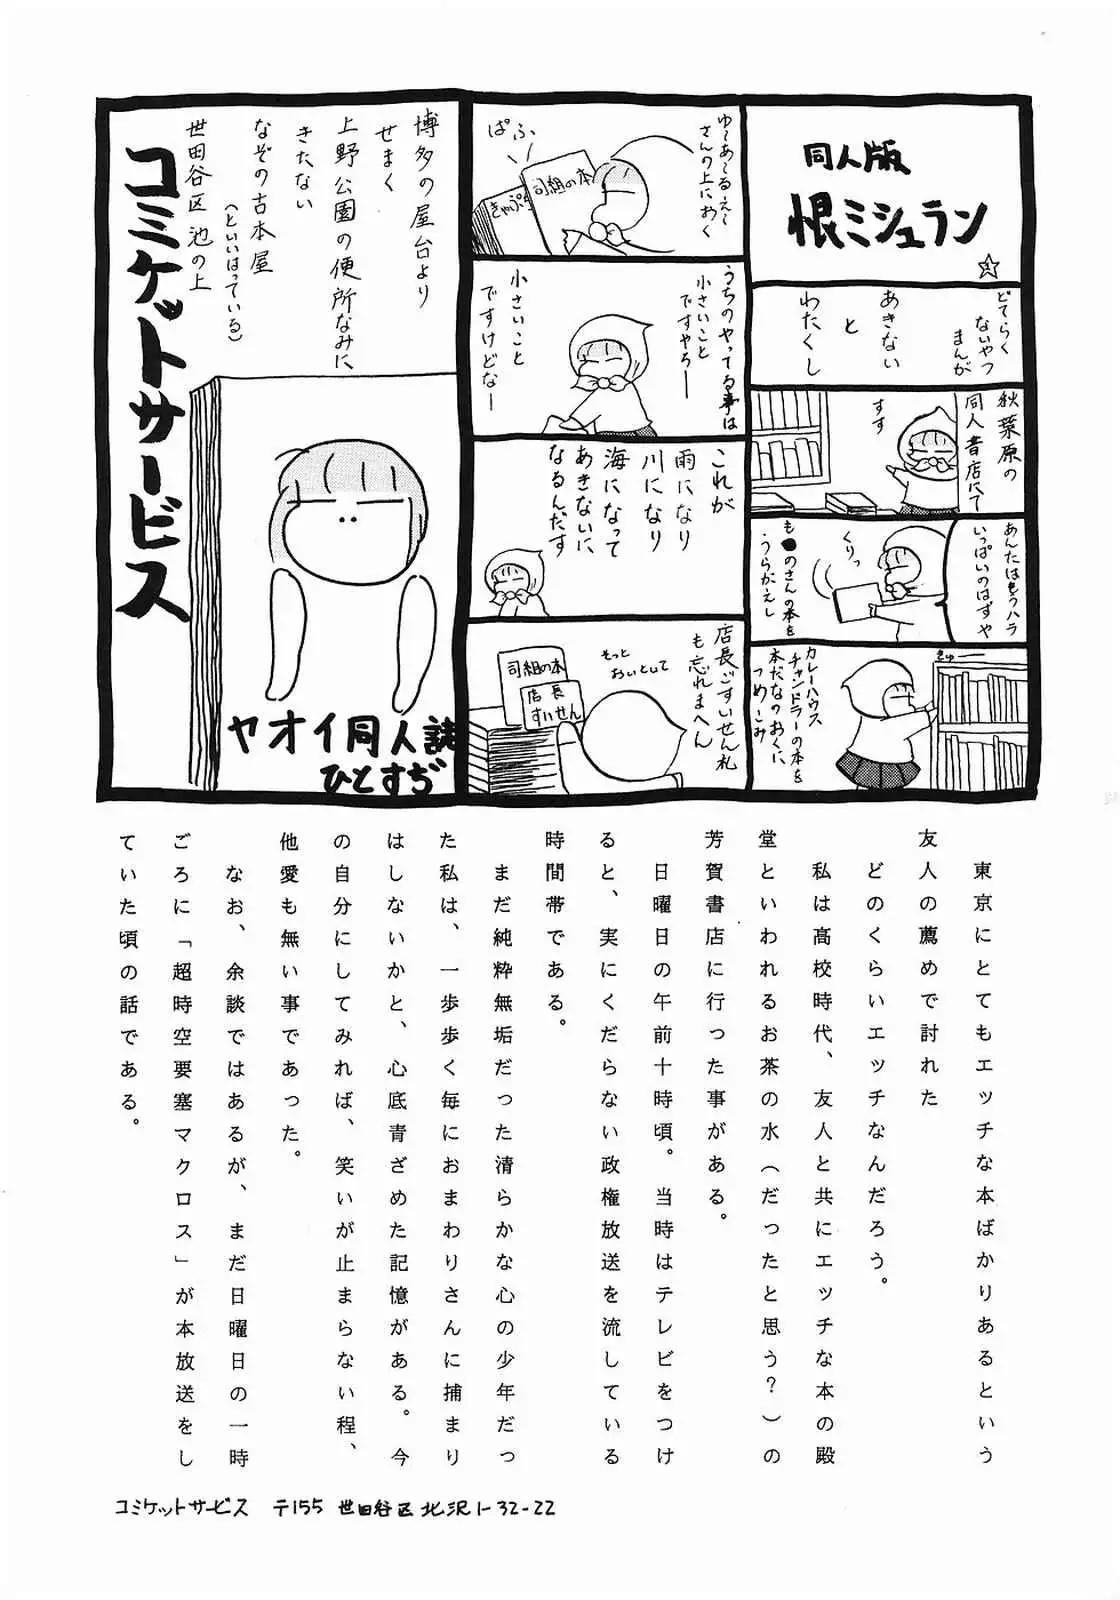 同人版
恨ミシュラン
どてらく
ないやつ
まんが
あきない
と
わたくし
秋葉原の
同人書店にて
すす
あんたはもうハラ
いっぱいのはずや
くりっ
も●のさんの本を
うらがえし
きゅー
カレーハウス
チャンドラーの本を
本だなのおくに
つめこみ
ゆ〜あ〜るえ〜
さんの上におく
ぱふ
司組の本
きゃぷ
うちのやってる事は
小さいこと
ですやろー
小さいこと
ですけどなー
これが
雨になり
川になり
海になって
あきないに
なるんだす
店長ごすいせん札
も忘れまへん
そっと
おいとして
司組の本
店長
すいせん
博多の屋台より
せまく
上野公園の便所なみに
きたない
なぞの古本屋
(といいはっている)
世田谷区池の上
コミケットサービス
ヤオイ同人誌
ひとすぢ
東京にとてもエッチな本ばかりあるという
友人の薦めで討れた
どのくらいエッチなんだろう。
私は高校時代、友人と共にエッチな本の殿
堂といわれるお茶の水(だったと思う?)の
芳賀書店に行った事がある。
日曜日の午前十時頃。当時はテレビをつけ
ると、実にくだらない政権放送を流している
時間帯である。
まだ純粋無垢だった清らかな心の少年だっ
た私は、一歩歩く毎におまわりさんに捕まり
はしないかと、心底青ざめた記憶がある。今
の自分にしてみれば、笑いが止まらない程、
他愛も無い事であった。
なお、余談ではあるが、まだ日曜日の一時
ごろに「超時空要塞マクロス」が本放送をし
ていた頃の話である。
コミケットサービス 〒155 世田谷区北沢1-32-22